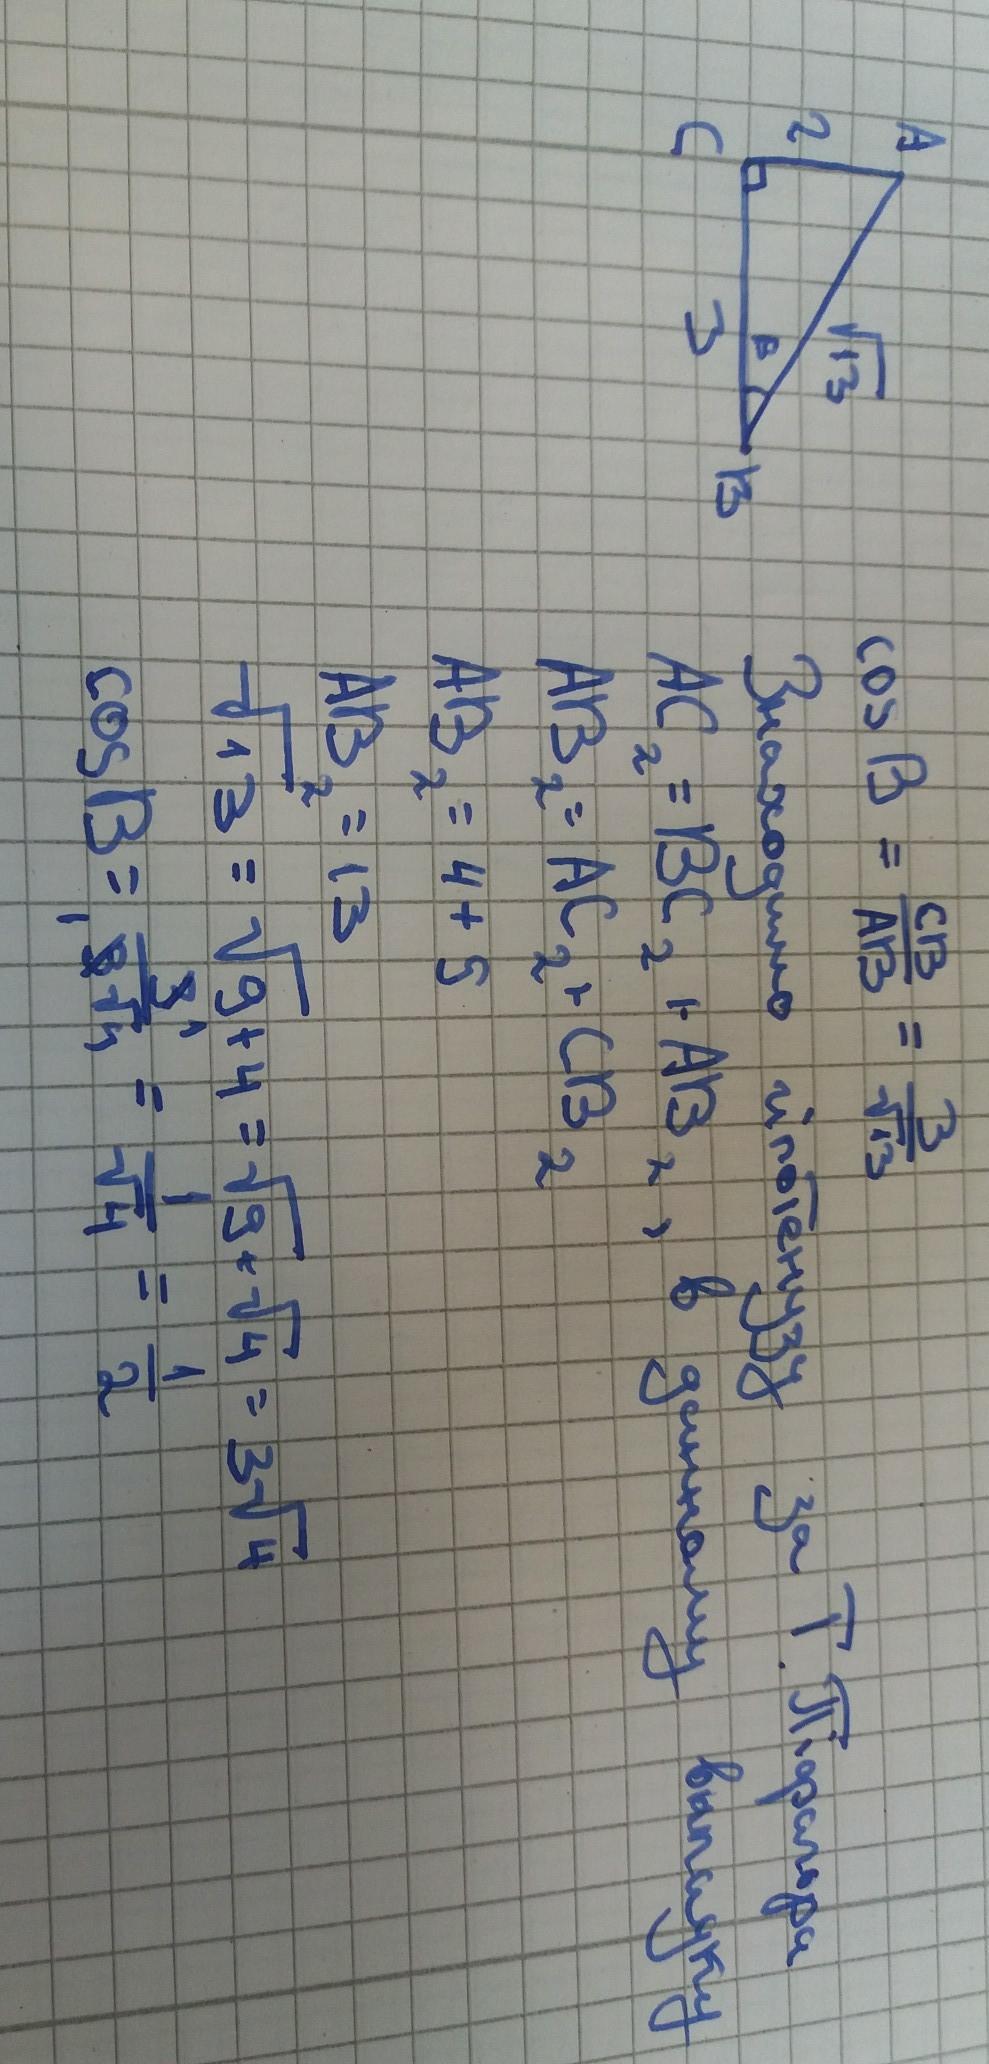 A
2
√13
B
C
3
B
cos B = CB/AB = 3/√13
Знаходимо йпотенузу за Т. Піфагора
AC₂ = BC₂ + AB₂, в данному випадку
AB₂ = AC₂ + CB₂
AB₂ = 4 + 5
AB₂ = 13
√13 = √9+4 = √9 + √4 = 3√4
cos B = 3 1/1 3√4 = 1/√4 = 1/2